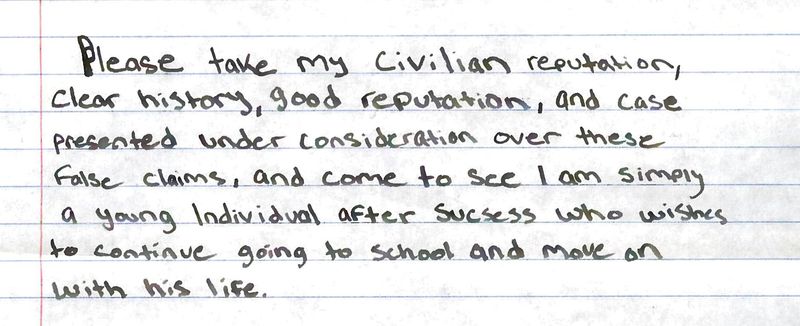 Please take my civilian reputation,
clear history, good reputation, and case
presented under consideration over these
false claims, and come to see I am simply
a young individual after sucsess who wishes
to continue going to school and move on
with his life.